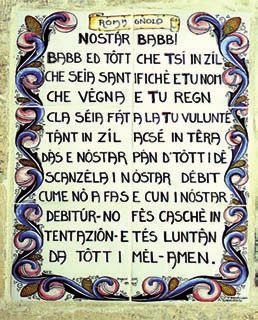 ROMAGNOLO
NOSTAR BABB!
BABB ED TÖTT CHE TSÍ IN ZÍL
CHE SEÍA SANTIFICHÈ E TU NOM
CHE VÉGNA E TU REGN
CLA SÉIA FÁTA LA TU VULUNTÉ
TÀNT IN ZÍL ACSÉ IN TÊRA
DÀS E NÓSTAR PÀN D'TÖTT I DÈ
SCANZÈLA I NÓSTAR DÉBIT
CUME NÔ A FAS E CUN I NÓSTAR
DEBITÚR-NO FÈS CASCHÈ IN
TENTAZIÔN-E TÉS LUNTÀN
DA TÖTT I MÊL-AMEN.